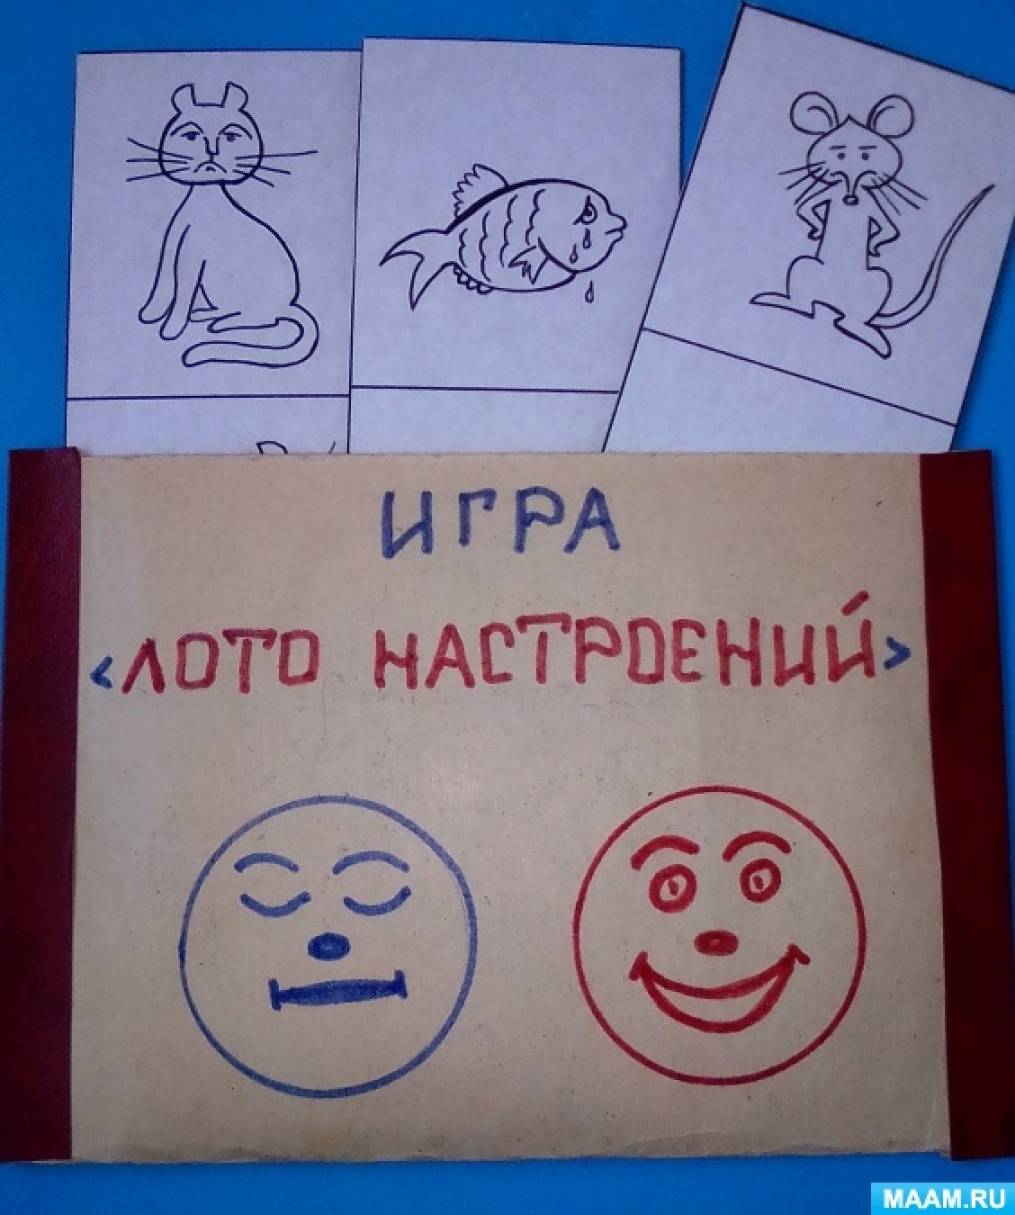 ИГРА
<ЛОТО НАСТРОЕНИЙ>
MAAM.RU